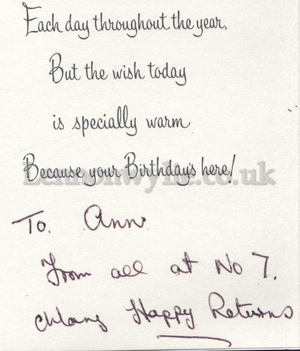 Each day throughout the year,
But the wish today
is specially warm
Because your Birthday's here!
Lennonwylie.co.uk
To. Ann
From all at No 7.
Many Happy Returns